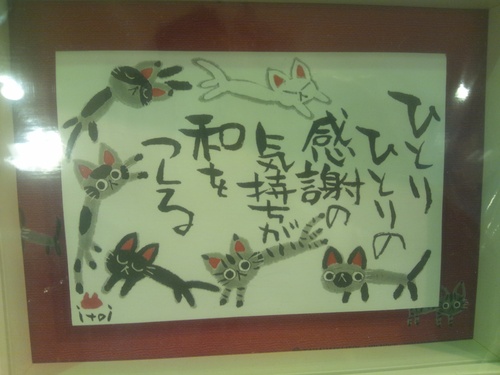 ひとり
ひとりの
感謝の
気持ちが
和を
つくる
itoi